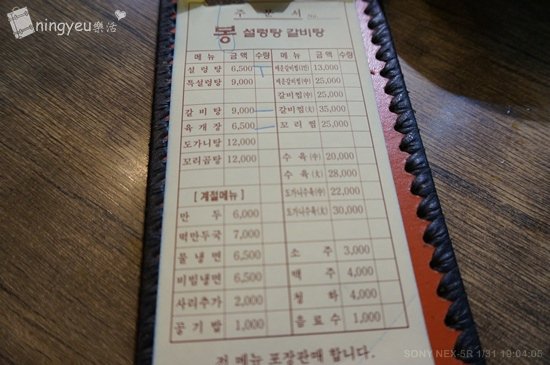 ningyeu樂活
주 문 서 No.
봉 설렁탕 갈비탕
메 뉴 금 액 수량 메 뉴 금 액 수량
설 렁 탕 6,500 매운갈비찜(1인) 13,000
특설렁탕 9,000 매운갈비찜(中) 25,000
갈비찜(中) 25,000
갈 비 탕 9,000 갈비찜(大) 35,000
육 개 장 6,500 꼬 리 찜 25,000
도가니탕 12,000
꼬리곰탕 12,000 수 육(中) 20,000
수 육(大) 28,000
[계절메뉴] 도가니수육(中) 22,000
만 두 6,000 도가니수육(大) 30,000
떡만두국 7,000
물 냉 면 6,500 소 주 3,000
비빔냉면 6,500 맥 주 4,000
사리추가 2,000 청 하 4,000
공 기 밥 1,000 음 료 수 1,000
전 메뉴 포장판매 합니다.
SONY NEX-5R 1/31 19:04:05